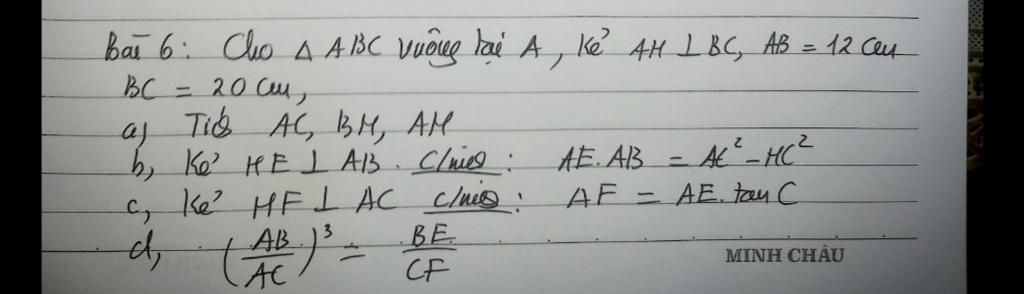 Bài 6: Cho △ ABC vuông tại A, Kẻ AH ⊥ BC, AB = 12 cm
BC = 20 cm,
a, Tính AC, BH, AH
b, Kẻ HE ⊥ AB. C/minh: AE.AB = AC² - HC²
c, Kẻ HF ⊥ AC C/minh: AF = AE. tan C
d, (AB/AC)³ = BE/CF
MINH CHÂU